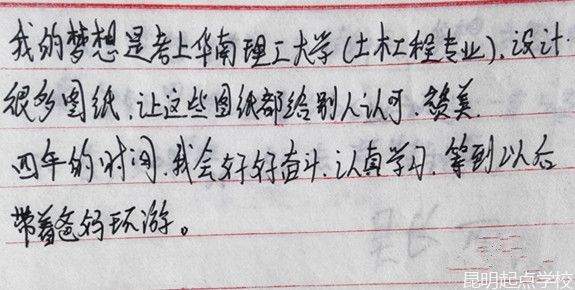 我的梦想是考上华南理工大学(土木工程专业),设计
很多图纸,让这些图纸都给别人认可、赞美.
四年的时间,我会好好奋斗,认真学习,等到以后
带着爸妈环游。
昆明起点学校